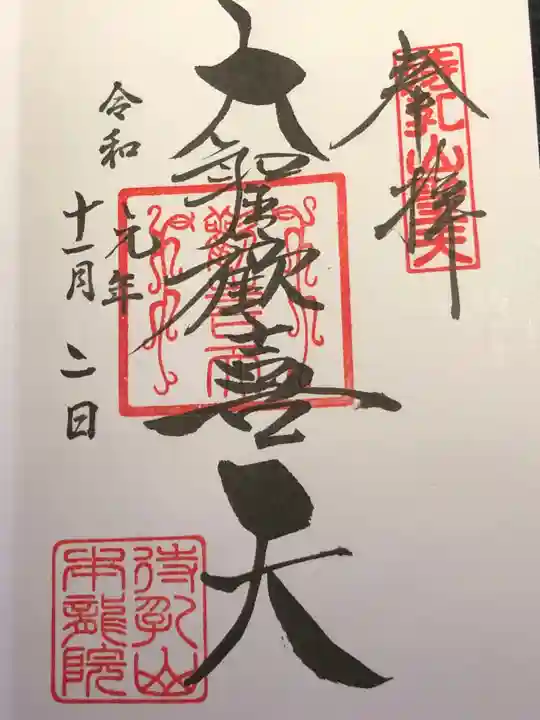 奉拝
待乳山聖天
大聖歓喜天
令和元年
十一月二日
待乳山
本龍院